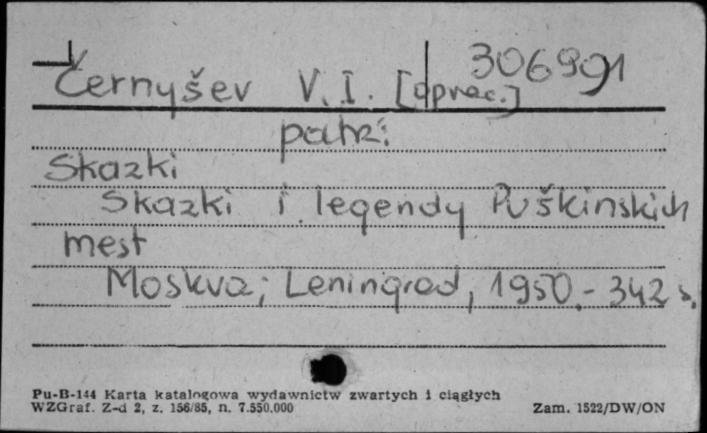 306991
Černyšev V. I. [oprac.]
patrz:
Skazki
Skazki i legendy Puškinskich
mest
Moskva; Leningrad, 1950. - 342 s.
Pu-B-144 Karta katalogowa wydawnictw zwartych i ciągłych
WZGraf. Z-d 2, z. 156/85, n. 7.550.000
Zam. 1522/DW/ON